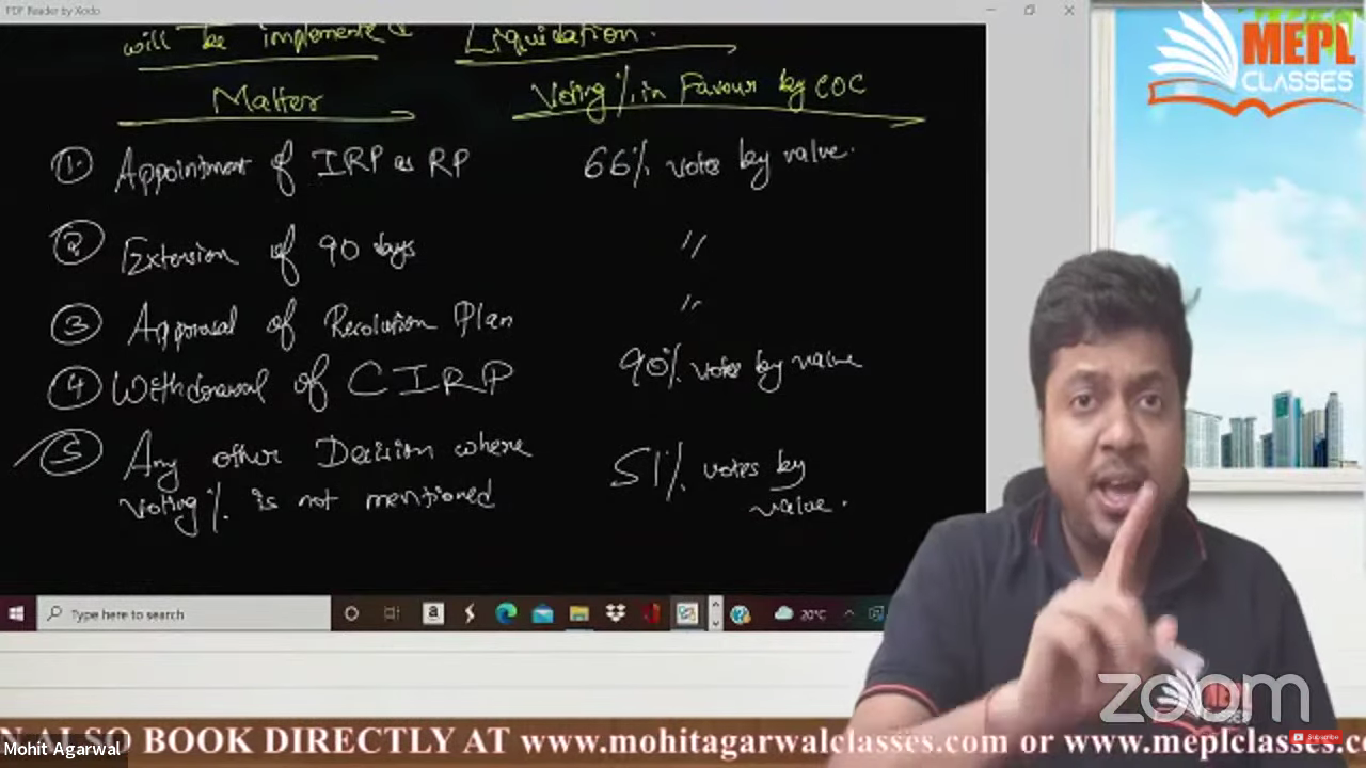 PDF Reader by Xodo
will be implemented Liquidation.
Matter Voting % in Favour by COC
① Appointment of IRP as RP 66% votes by value.
② Extension of 90 days "
③ Approval of Resolution Plan "
④ Withdrawal of CIRP 90% votes by value
⑤ Any other Decision where 51% votes by
voting % is not mentioned value.
MEPL
CLASSES
Type here to search
a
20°C
zoom
MEPL
Subscribe
N ALSO BOOK DIRECTLY AT www.mohitagarwalclasses.com or www.meplclasses.c
Mohit Agarwal